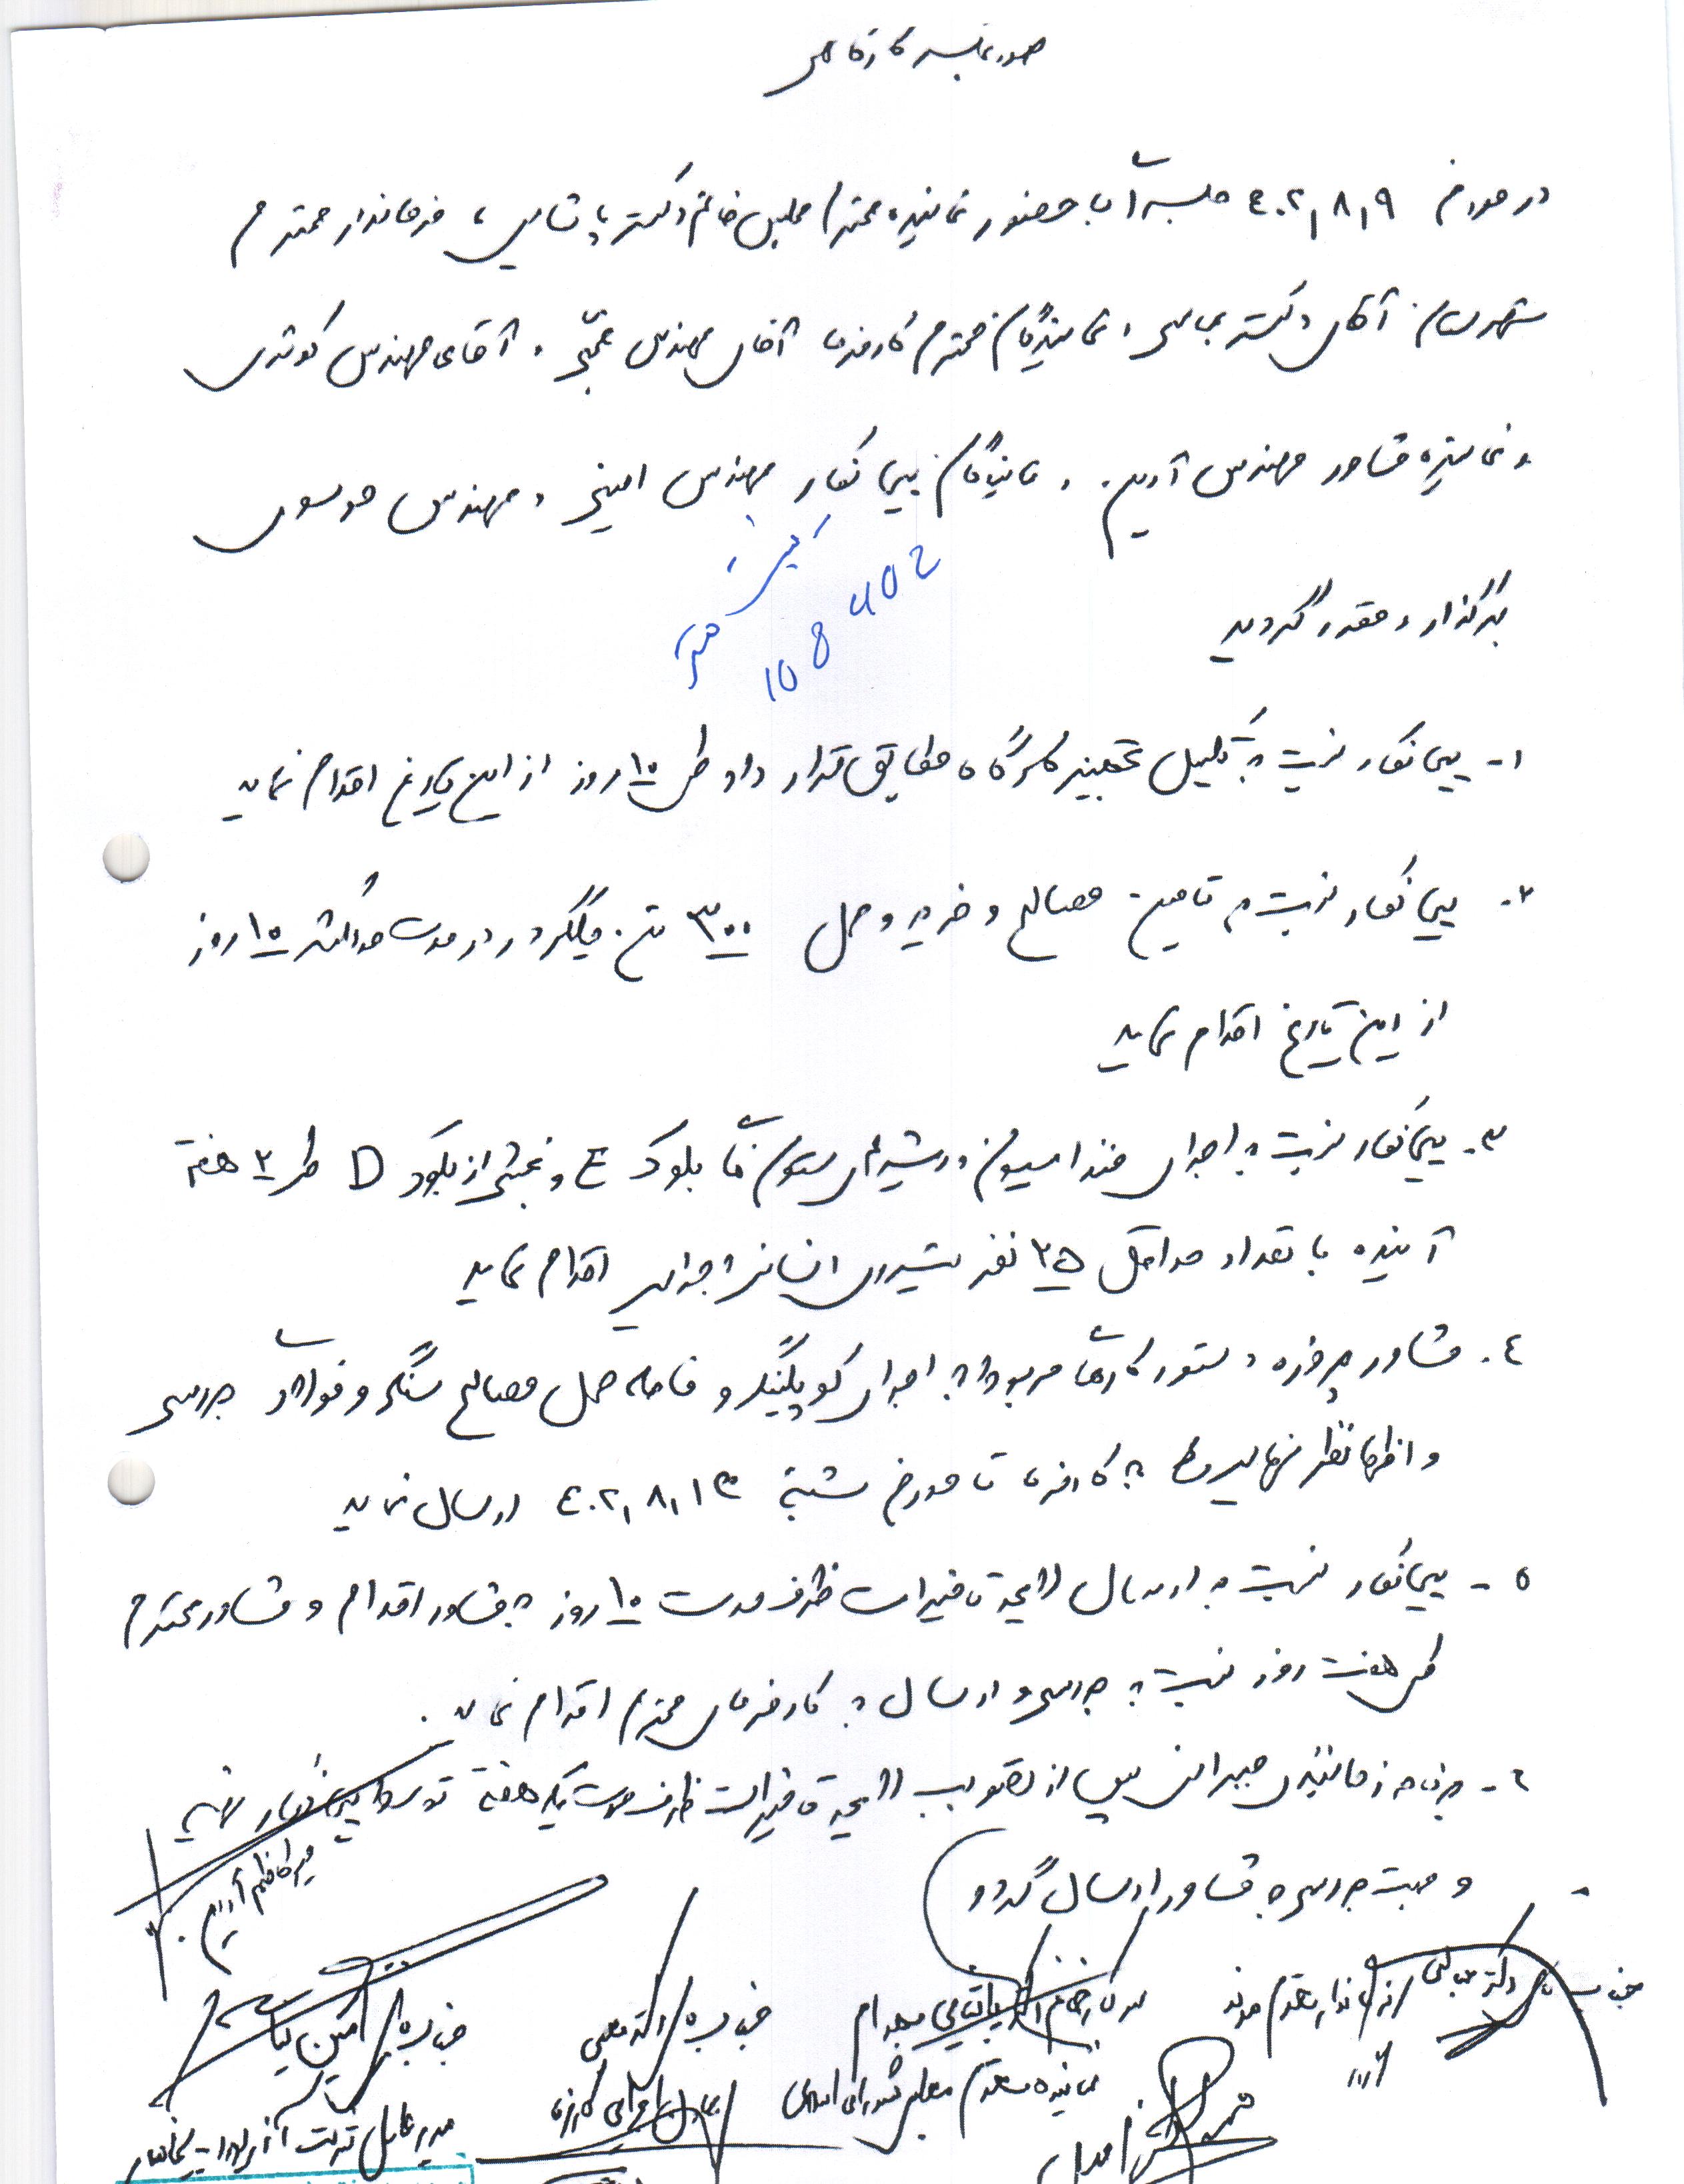 صورتجلسه کارگاهی
در مورخ ۴۰۲٫۸٫۹ جلسه‌ای با حضور نماینده محترم مجلس خانم دکتر پاشایی ، فرماندار محترم
شهرستان آقای دکتر عباسی و نمایندگان محترم کارفرما آقای مهندس و آقای مهندس کوثری
و نماینده مشاور مهندس آرین و نمایندگان پیمانکار مهندس امینی و مهندس موسوی
برگزار و مقرر گردید
402 8 10
۱- پیمانکار نسبت به تکمیل تجهیز کارگاه مطابق قرارداد طی ۱۰ روز از این تاریخ اقدام نماید
۲- پیمانکار نسبت به تامین مصالح و خرید و حمل ۳۰۰ تن میلگرد در مدت حداکثر ۱۰ روز
از این تاریخ اقدام نماید
۳- پیمانکار نسبت به اجرای فنداسیون و ریشه‌های ستون‌های بلوک E و بخشی از بلوک D طی ۲ هفته
آینده با تعداد حداقل ۲۵ نفر نیروی انسانی اجرایی اقدام نماید
۴- مشاور پروژه دستور کارهای مربوط به اجرای کوپلینگ و فاصله حمل مصالح سنگی و فولادی بررسی
و اظهار نظر نهایی را به کارفرما تا مورخ شنبه ۴۰۲٫۸٫۱۳ ارسال نماید
۵- پیمانکار نسبت به ارسال لایحه تاخیرات ظرف مدت ۱۰ روز به مشاور اقدام و مشاور محترم
طی هفت روز نسبت به بررسی و ارسال به کارفرمای محترم اقدام نماید .
۶- برنامه زمانبندی جبرانی پس از تصویب لایحه تاخیرات ظرف مدت یک هفته توسط پیمانکار تهیه
و جهت بررسی به مشاور ارسال گردد
میرکاظم آرین
جناب آقای دکتر عباسی فرماندار محترم مرند
سرکار خانم دکتر پاشایی
نماینده محترم مجلس شورای اسلامی
جناب
جناب
مدیرعامل شرکت پیمانکار